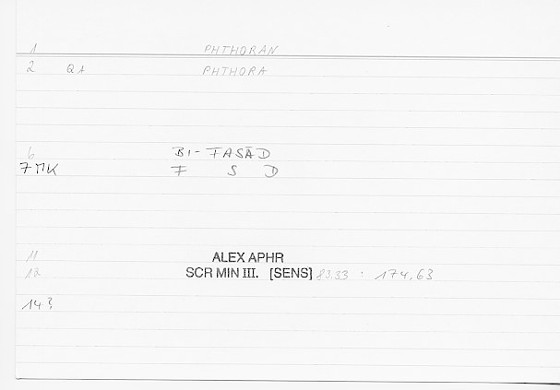 1 PHTHORAN
2 Q1 PHTHORA
6 BI-FASĀD
7 MK F S D
11 ALEX APHR
12 SCR MIN III. [SENS] 83.33 · 174,63
14?